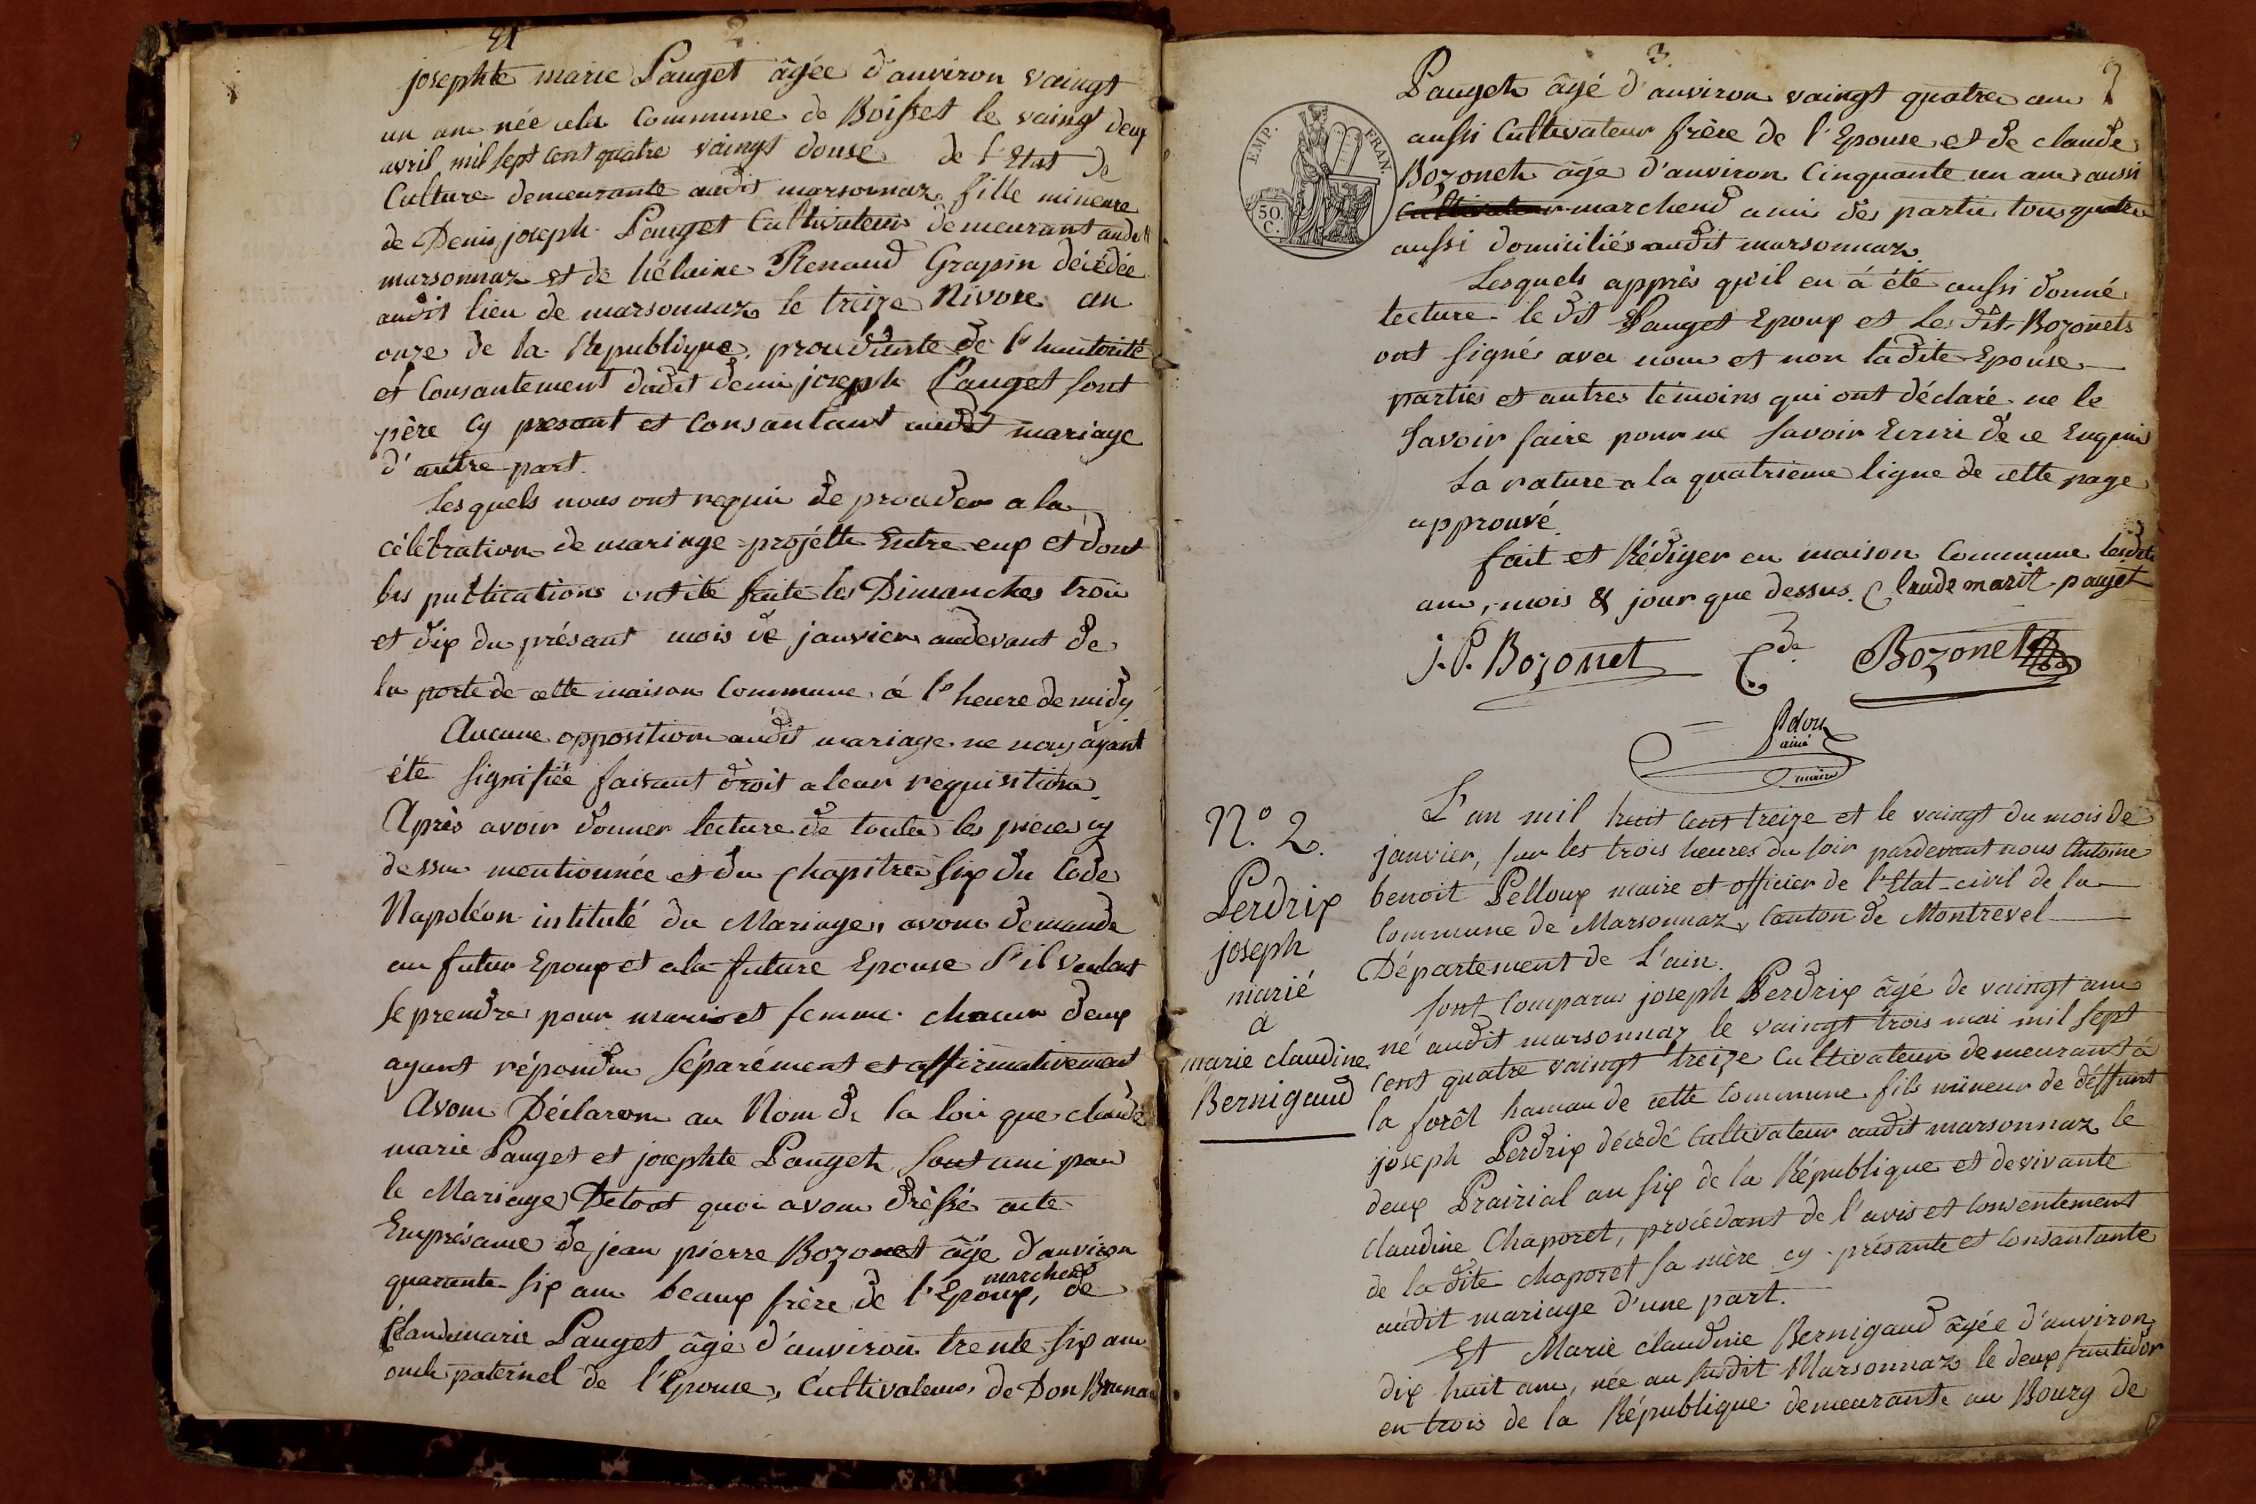 Et
2
josephte marie Pauget âgée d'auviron vaingt
un ans née a la Commune de Boisset le vaingt deux
avril mil sept cent quatre vaingt douse de l'Etat de
Culture demeurante audit marsonnaz fille mineure
de Denis joseph Pauget Cultivateur demeurant audit
marsonnaz et de hélaine Renaud Grapin décédée
audit lieu de marsonnaz le treize Nivose an
onze de la Republique. procedante de l'hautorité
et Consantement dudit denis joseph Pauget sont
père cy presant et Consantant audit mariage
d'autre part.
Lesquels nous ont requis de proceder a la
célébration de mariage projétté Entre eux et dont
les publications ont été faite les Dimanches trois
et dix du présant mois de janvier audevant de
la porte de cette maison Commune à l'heure de midy
Aucune opposition audit mariage ne nous ayant
été signifiée faisant droit a leur requisition
Après avoir donner lecture de toutes les pièces cy
dessus mentionnée et du chapitre six du Code
Napoléon institulé du Mariage, avons demandé
au futur Epoux et a la future Epouse s'il veulent
se prendre pour mari et femme chacun deux
ayant répondu séparément et affirmativement
Avons Déclarons au Nom de la loi que claude
marie Pauget et josephte Pauget sont uni par
le Mariage De tout quoi avons dréssé acte
En présance de jean pierre Bozonet âgé d'auviron
quarante six ans beaux frère de l'Epoux, marchend de
Claudemarie Pauget âgé d'auviron trente six ans
oncle paternel de l'Epouse, Cultivateur, de Don Bruna
3.
2
EMP. FRAN.
50 C.
Pauget âgé d'auviron vaingt quatre ans
aussi Cultivateur frère de l'Epouse et de claude
Bozonet âgé d'auviron Cinquante un ans aussi
Cultivateur marchend ami des partie tous quatre
aussi domiciliés audit marsonnaz.
Lesquels apprès qu'il en á été aussi donné
lecture le dit Pauget Epoux et les dits Bozonets
ont signés avec nous et non ladite Epouse
parties et autres témoins qui ont déclaré ne le
savoir faire pour ne savoir Ecrire de ce Enquis
La rature a la quatrieme ligne de cette page
approuvé.
fait et Rédiger en maison Commune lesdits
ans, mois & jour que dessus. Claude marit pauget
J. P. Bozonet Cde Bozonet
ainé
maire
N.o 2.
Perdrix
joseph
marié
à
marie claudine
Bernigaud
L'an mil huit cent treize et le vaingt du mois de
janvier, sur les trois heures du soir pardevant nous Antoine
benoit Pelloux maire et officier de l'Etat-civil de la
Commune de Marsonnaz, Canton de Montrevel
Département de L'ain.
sont Comparus joseph Perdrix âgé de vaingt ans
né audit marsonnaz le vaingt trois mai mil sept
Cent quatre vaingt treize Cultivateur demeurant à
la forêt hamau de cette Commune fils mineur de déffunt
joseph Perdrix décédé Cultivateur audit marsonnaz le
deux Prairial an six de la République et de vivante
Claudine Chaporet, procédant de l'avis et Consentement
de la dite chaporet sa mère cy présante et Consantante
audit mariage d'une part.
Et Marie claudine Bernigaud âgée d'auviron
dix huit ans, née au susdit Marsonnaz le deux fructidor
en trois de la République demeurante au Bourg de